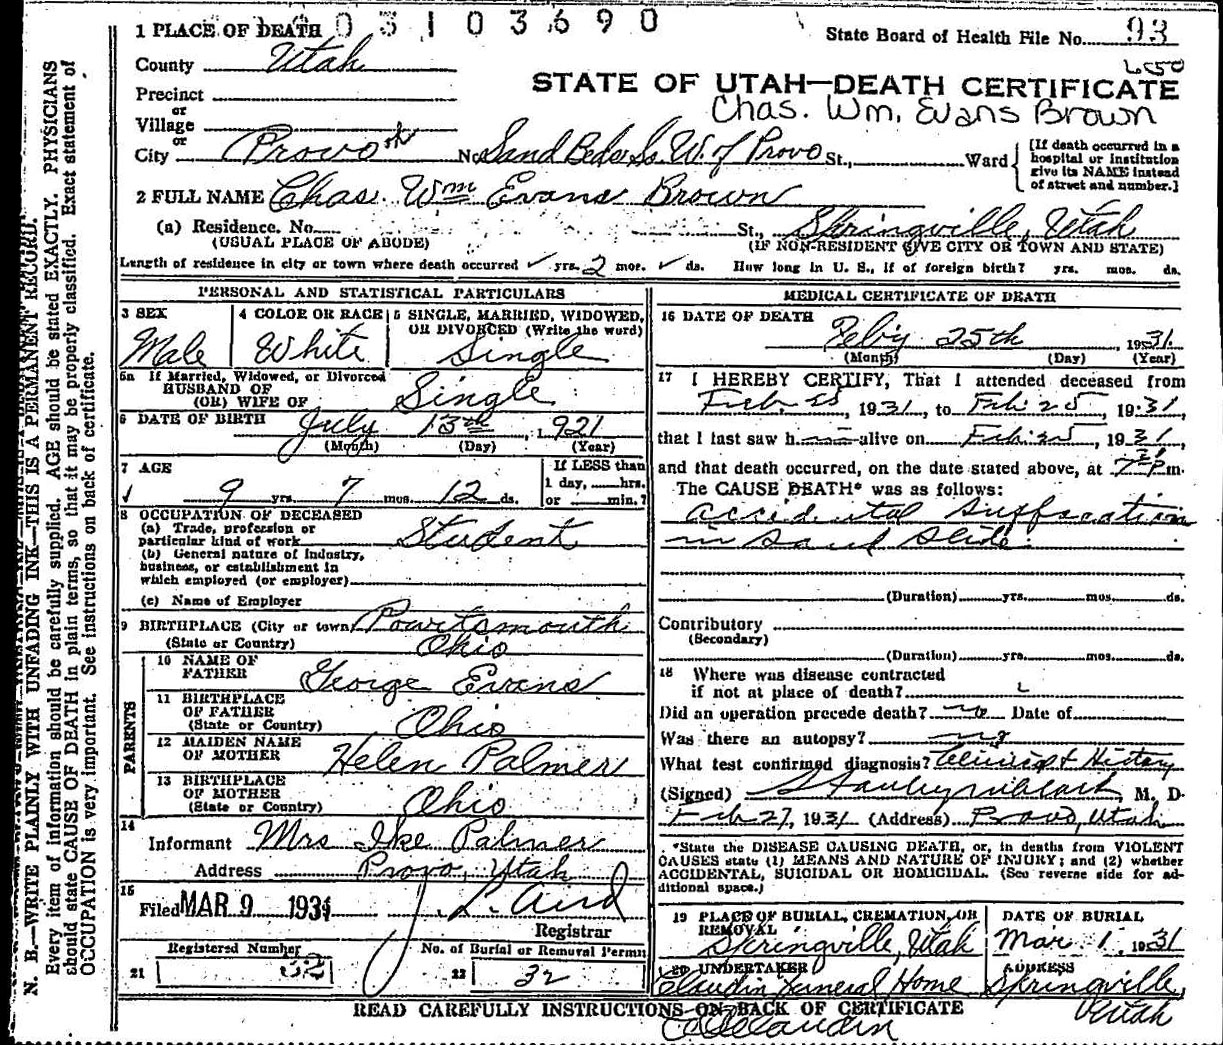 03103690
1 PLACE OF DEATH
State Board of Health File No. 93
County Utah
650
STATE OF UTAH—DEATH CERTIFICATE
Precinct
Chas. Wm. Evans Brown
or
Village
or
City Provo No. Sand Beds So. W. of Provo St., Ward
[If death occurred in a hospital or institution give its NAME instead of street and number.]
2 FULL NAME Chas. Wm Evans Brown
(a) Residence. No. St., Springville, Utah
(USUAL PLACE OF ABODE) (IF NON-RESIDENT GIVE CITY OR TOWN AND STATE)
Length of residence in city or town where death occurred ✓ yrs. 2 mos. ✓ ds. How long in U. S., if of foreign birth? yrs. mos. ds.
PERSONAL AND STATISTICAL PARTICULARS
3 SEX
Male
4 COLOR OR RACE
White
5 SINGLE, MARRIED, WIDOWED, OR DIVORCED (Write the word)
Single
5a If Married, Widowed, or Divorced
HUSBAND OF
(OR) WIFE OF Single
6 DATE OF BIRTH July 13th, 1921
(Month) (Day) (Year)
7 AGE
9 yrs. 7 mos. 12 ds.
If LESS than
1 day, hrs.
or min.?
8 OCCUPATION OF DECEASED
(a) Trade, profession or
particular kind of work Student
(b) General nature of Industry,
business, or establishment in
which employed (or employer)
(c) Name of Employer
9 BIRTHPLACE (City or town) Powrtsmouth
(State or Country) Ohio
PARENTS
10 NAME OF
FATHER George Evans
11 BIRTHPLACE
OF FATHER
(State or Country) Ohio
12 MAIDEN NAME
OF MOTHER Helen Palmer
13 BIRTHPLACE
OF MOTHER
(State or Country) Ohio
14
Informant Mrs Ike Palmer
Address Provo, Utah
15
Filed MAR 9 1931 J. L. Aird
Registrar
Registered Number No. of Burial or Removal Permit
21 32 22 32
MEDICAL CERTIFICATE OF DEATH
16 DATE OF DEATH
Feb'y 25th, 1931
(Month) (Day) (Year)
17 I HEREBY CERTIFY, That I attended deceased from
Feb. 25, 1931, to Feb. 25, 1931,
that I last saw h alive on Feb. 25, 1931,
and that death occurred, on the date stated above, at 7 P m.
The CAUSE DEATH* was as follows:
accidental suffocation
in sand slide.
(Duration) yrs. mos. ds.
Contributory
(Secondary)
(Duration) yrs. mos. ds.
18 Where was disease contracted
if not at place of death?
Did an operation precede death? no Date of
Was there an autopsy? no
What test confirmed diagnosis? History
(Signed) Stanley M. Clark, M. D.
Feb 27, 1931 (Address) Provo, Utah
*State the DISEASE CAUSING DEATH, or, in deaths from VIOLENT
CAUSES state (1) MEANS AND NATURE OF INJURY; and (2) whether
ACCIDENTAL, SUICIDAL OR HOMICIDAL. (See reverse side for ad-
ditional space.)
19 PLACE OF BURIAL, CREMATION, OR REMOVAL
Springville, Utah
DATE OF BURIAL
Mar 1, 1931
20 UNDERTAKER
Claudin Funeral Home
ADDRESS
Springville, Utah
READ CAREFULLY INSTRUCTIONS ON BACK OF CERTIFICATE
N. B.—WRITE PLAINLY WITH UNFADING INK—THIS IS A PERMANENT RECORD.
Every item of information should be carefully supplied. AGE should be stated EXACTLY. PHYSICIANS
should state CAUSE OF DEATH in plain terms, so that it may be properly classified. Exact statement of
OCCUPATION is very important. See instructions on back of certificate.